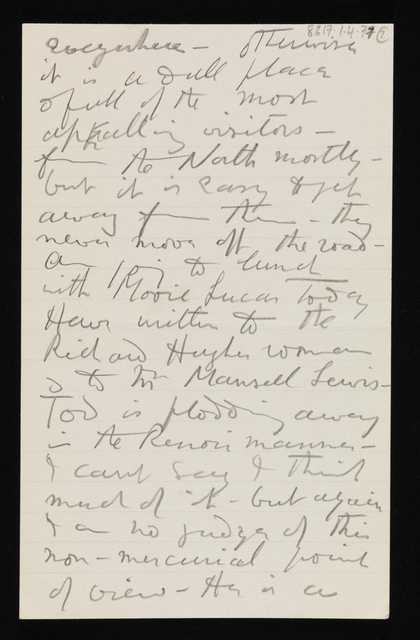 8817.1.4.37
everywhere — Otherwise
it is a dull place
& full of the most
appalling visitors —
from the North mostly —
but it is easy to get
away from them — they
never move off the road —
am going to lunch
with Lucas Today
Have written to the
Richard Hughes woman
& to Mr Mansell Lewis —
Tod is plodding away
in the Renoir manner —
I cant say I think
much of it — but again
I am no judge of this
non-mercurial point
of view — He is a